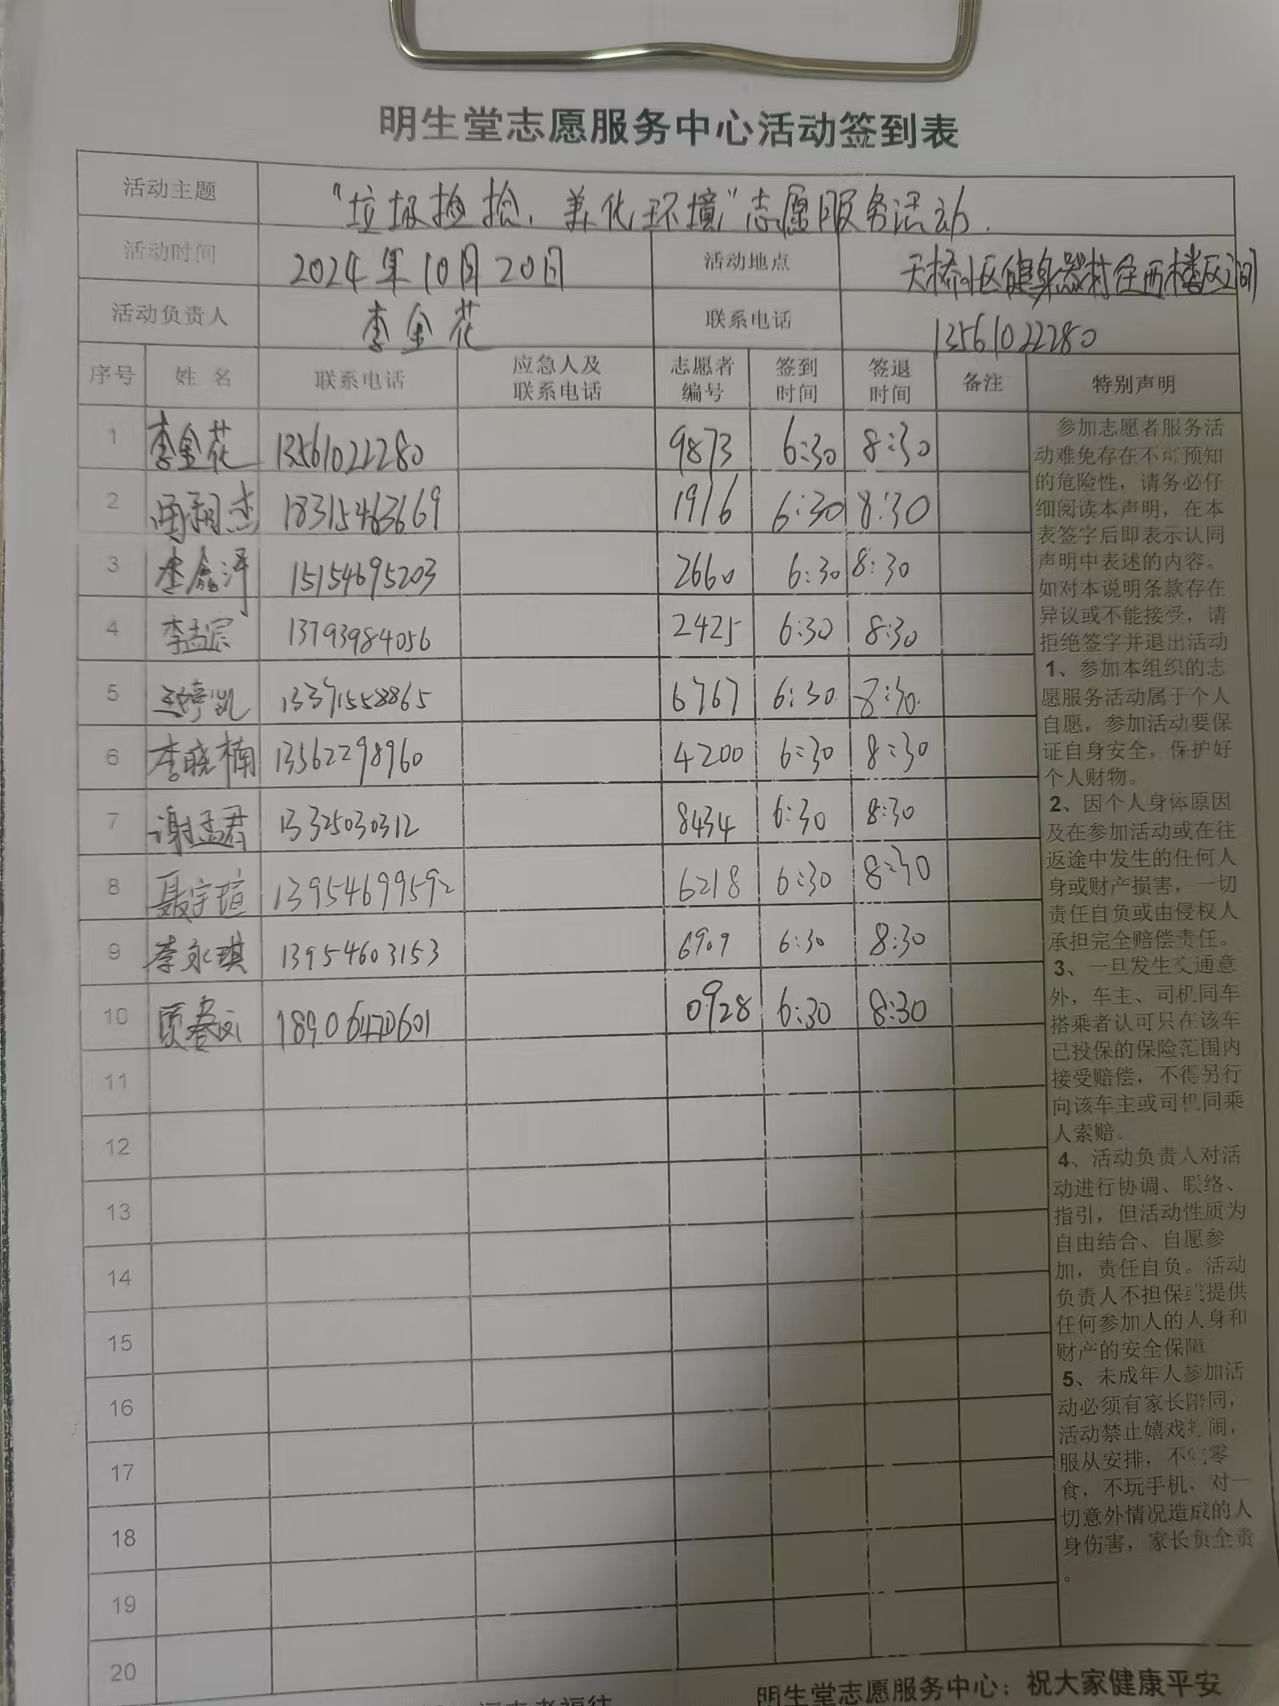 明生堂志愿服务中心活动签到表
活动主题 "垃圾捡拾、美化环境"志愿服务活动.
活动时间 2024年10月20日 活动地点 天桥小区健身器材往西楼区之间
活动负责人 李金花 联系电话 13561022280
序号 姓名 联系电话 应急人及联系电话 志愿者编号 签到时间 签退时间 备注 特别声明
1 李金花 13561022280 9873 6:30 8:30
2 18315463669 1916 6:30 8:30
3 李鑫泽 15154695203 2660 6:30 8:30
4 李孟宗 13793984056 2425 6:30 8:30
5 13371558865 6767 6:30 8:30
6 李晓楠 13562298960 4200 6:30 8:30
7 谢孟君 13325030312 8434 6:30 8:30
8 聂宇瑄 13954699592 6218 6:30 8:30
9 李永琪 13954603153 6909 6:30 8:30
10 0928 6:30 8:30
11
12
13
14
15
16
17
18
19
20
参加志愿者服务活
动难免存在不可预知
的危险性，请务必仔
细阅读本声明，在本
表签字后即表示认同
声明中表述的内容。
如对本说明条款存在
异议或不能接受，请
拒绝签字并退出活动
1、参加本组织的志
愿服务活动属于个人
自愿，参加活动要保
证自身安全，保护好
个人财物。
2、因个人身体原因
及在参加活动或在往
返途中发生的任何人
身或财产损害，一切
责任自负或由侵权人
承担完全赔偿责任。
3、一旦发生交通意
外，车主、司机同车
搭乘者认可只在该车
已投保的保险范围内
接受赔偿，不得另行
向该车主或司机同乘
人索赔。
4、活动负责人对活
动进行协调、联络、
指引，但活动性质为
自由结合、自愿参
加，责任自负。活动
负责人不担保或提供
任何参加人的人身和
财产的安全保障
5、未成年人参加活
动必须有家长陪同，
活动禁止嬉戏打闹，
服从安排，不吃零
食，不玩手机，对一
切意外情况造成的人
身伤害，家长负全责
。
明生堂志愿服务中心：祝大家健康平安